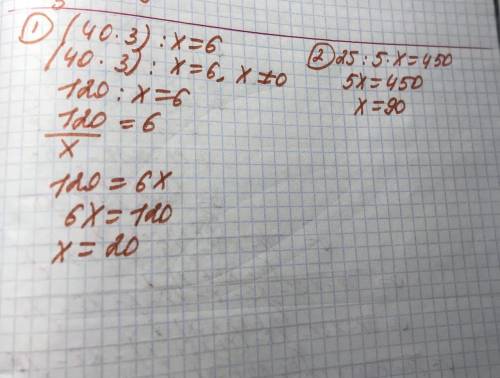 ① (40 · 3) : x = 6
(40 · 3) : x = 6, x ≠ 0
120 : x = 6
120/x = 6
120 = 6x
6x = 120
x = 20
② 25 : 5 · x = 450
5x = 450
x = 90